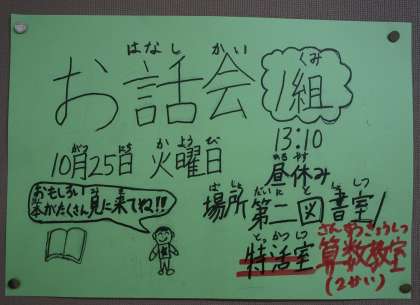 はなし かい
お話会 1組
くみ
13:10
がつ にち か よう び
10月25日 火曜日
ひる やす
昼休み
おもしろい
本がたくさん見に来てね!!
ば しょ だい に と しょ しつ
場所 第二図書室
とっ かつ しつ
特活室
さんすうきょうしつ
算数教室
(2かい)